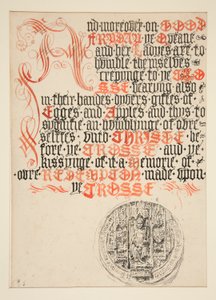 And moreover on GOOD
FRIDAY ye Queane
and her Ladyes are to
humble themselves
creepynge to ye CRO
SSE bearyng also
in their handes dyvers giftes of
Egges and Apples and thys to
sygnifie an humblynge of oure
selffes unto CHRISTE be
fore ye CROSSE and ye
kissynge of it a Memorie of
oure REDEMPTION made upon
ye CROSSE